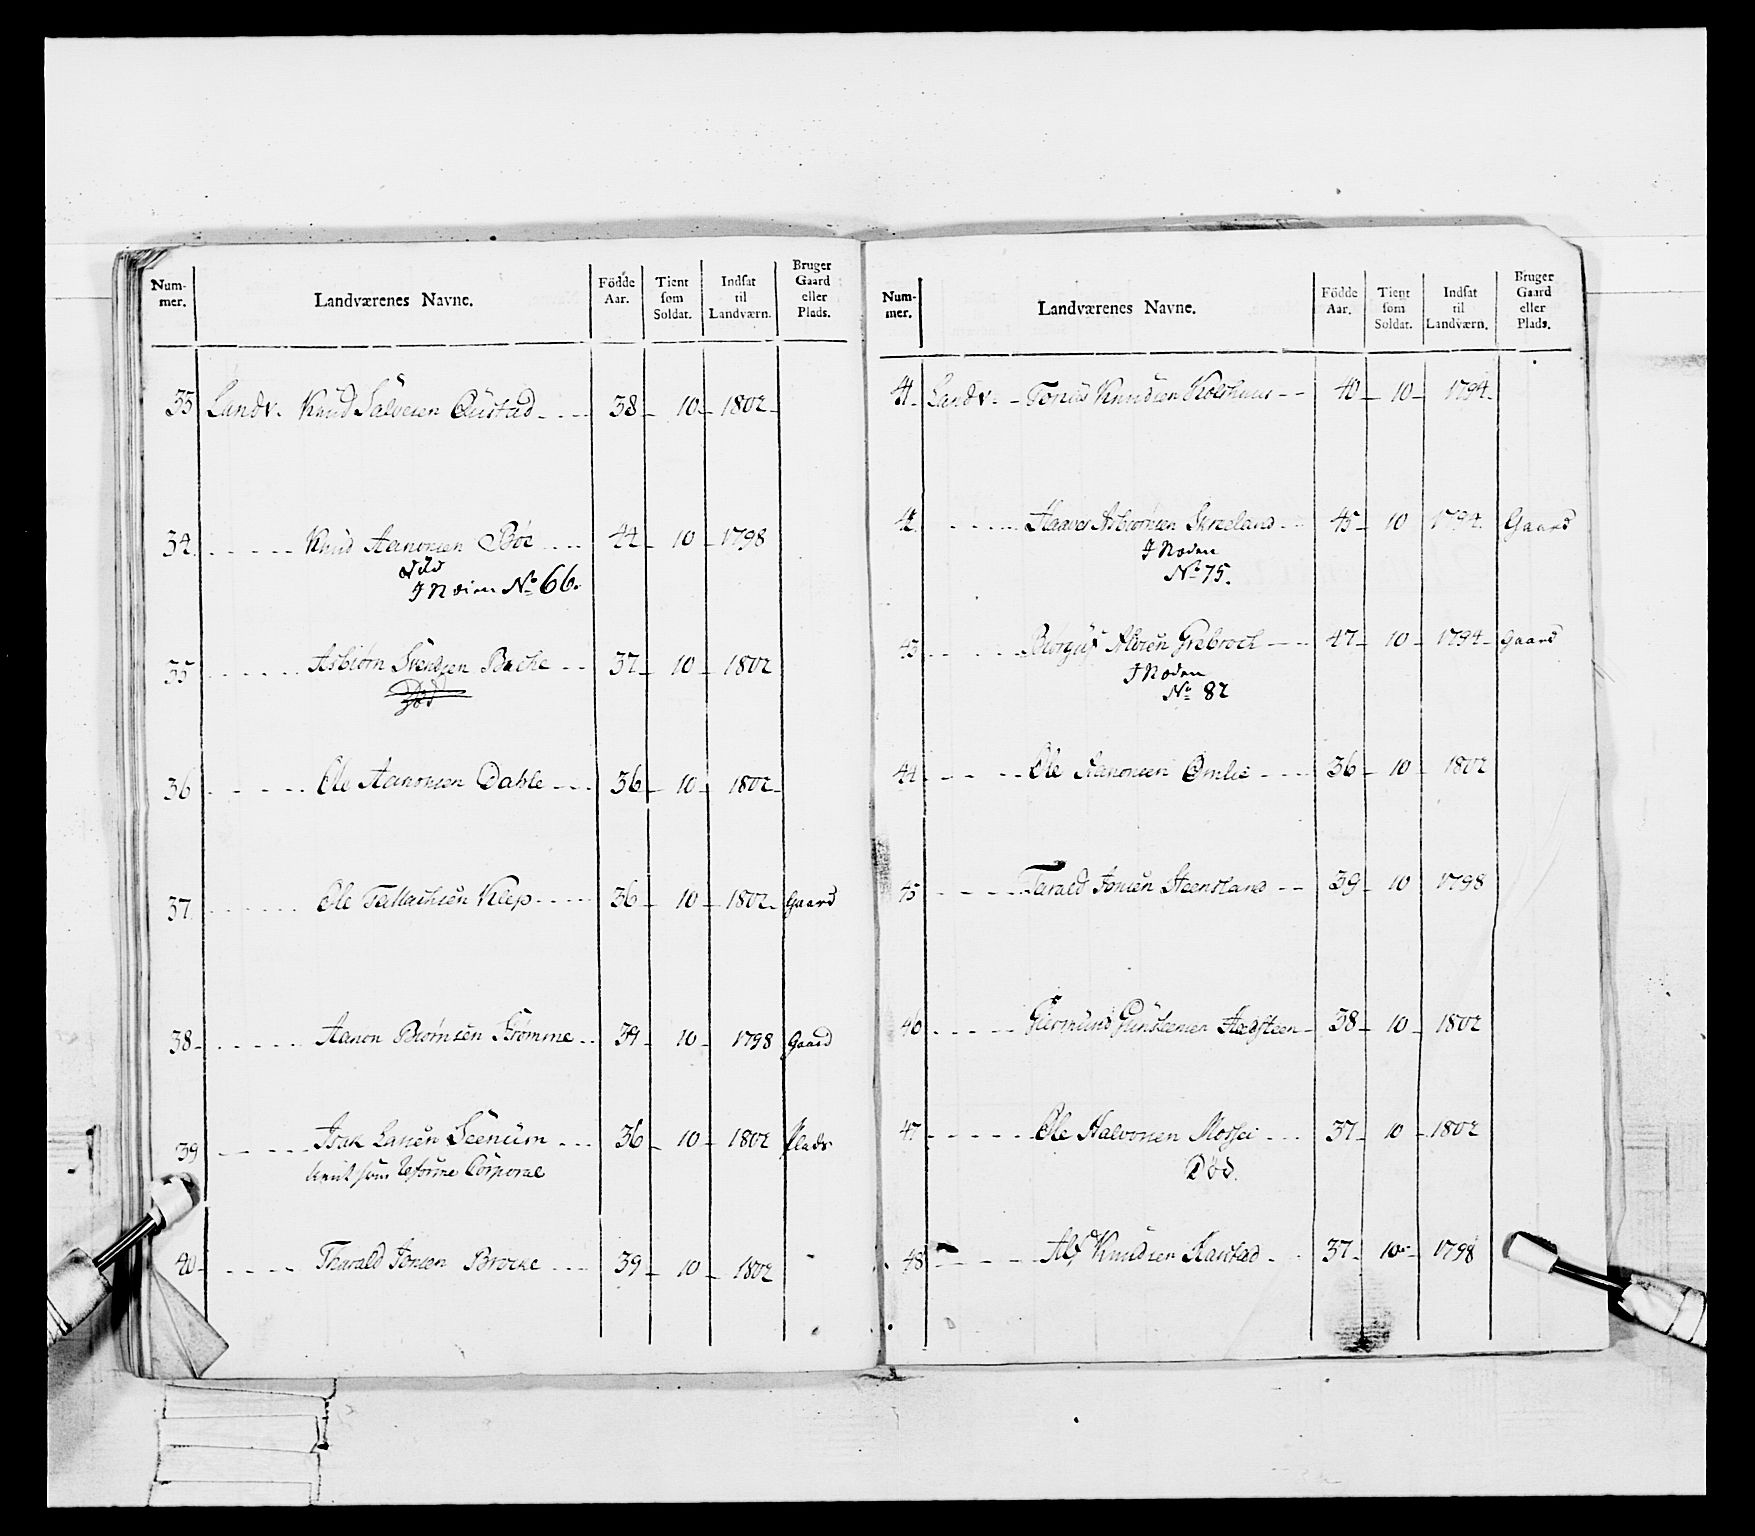 Num-mer. Landværenes Navne. Födde Aar. Tient som Soldat. Indsat til Landværn. Bruger Gaard eller Plads.
33 Landv. Knud Salvesen Qustad 38 10 1802
34 Knud Aanonsen Böe 44 10 1798
I Noden No 66.
35 Asbiørn Svendsen Bache 37 10 1802
Död
36 Ole Aanonsen Dahle 36 10 1802
37 Ole Tellachsen Klep 36 10 1802 Gaard
38 Aanon Biörnsen Strømme 39 10 1798 Gaard
39 Isak Larsen Seenum 36 10 1802 Plads
tient som Corporal
40 Tharald Jonsen Brocke 39 10 1802
Num-mer. Landværenes Navne. Födde Aar. Tient som Soldat. Indsat til Landværn. Bruger Gaard eller Plads.
41 Landv. Knudsen 40 10 1794
42 Haaver Asbiørnsen Skreeland 45 10 1794 Gaard
I Noden
No 75.
43 Börguf Alvsen Grebroch 47 10 1794 Gaard
I Noden
No 82
44 Ole Aanonsen Omlie 36 10 1802
45 Tarald Jonsen Steensland 39 10 1798
46 Giermund Gunstensen 38 10 1802
47 Ole Halvorsen Mossei 37 10 1802
Död.
48 Alf Knudsen 37 10 1798